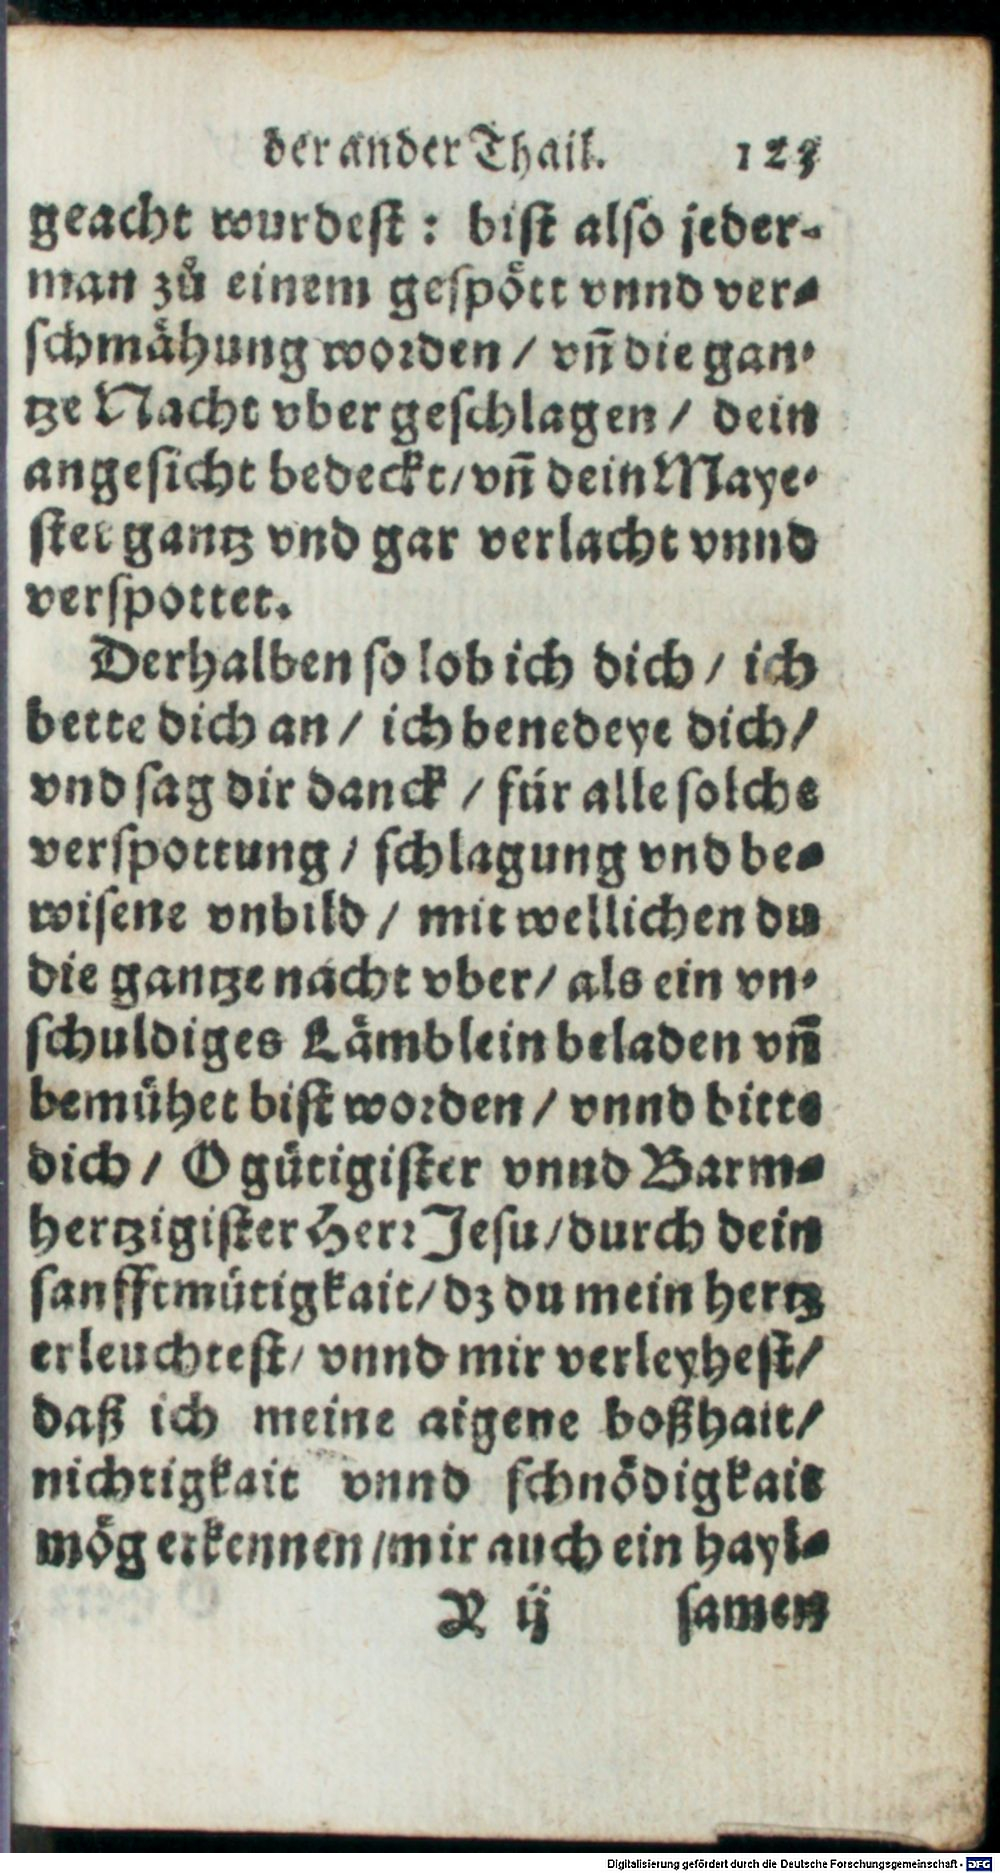 der ander Thail. 123
geacht wurdest: bist also jeder-
man zů einem gespött vnnd ver-
schmähung worden / vn̄ die gan-
tze Nacht vber geschlagen / dein
angesicht bedeckt / vn̄ dein Maye-
stet gantz vnd gar verlacht vnnd
verspottet.
Derhalben so lob ich dich / ich
bette dich an / ich benedeye dich /
vnd sag dir danck / für alle solche
verspottung / schlagung vnd be-
wisene vnbild / mit wellichen du
die gantze nacht vber / als ein vn-
schuldiges Lämblein beladen vn̄
bemühet bist worden / vnnd bitte
dich / O gütigister vnnd Barm-
hertzigister Herr Jesu / durch dein
sanfftmütigkait / dz du mein hertz
erleuchtest / vnnd mir verleyhest /
daß ich meine aigene boßhait /
nichtigkait vnnd schnödigkait
mög erkennen / mir auch ein hayl-
R ij samen
Digitalisierung gefördert durch die Deutsche Forschungsgemeinschaft - DFG